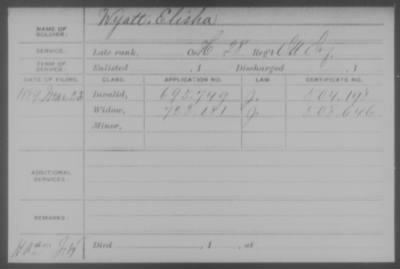 NAME OF SOLDIER: Wyatt, Elisha
SERVICE: Late rank, Co. H, 28 Reg't Inf.
TERM OF SERVICE: Enlisted , 1 Discharged , 1
DATE OF FILING. CLASS. APPLICATION NO. LAW. CERTIFICATE NO.
1889 Mar. 23 Invalid, 695.749 J. 504.198
Widow, J. 503.646
Minor,
ADDITIONAL SERVICES:
REMARKS:
Died , 1 , at